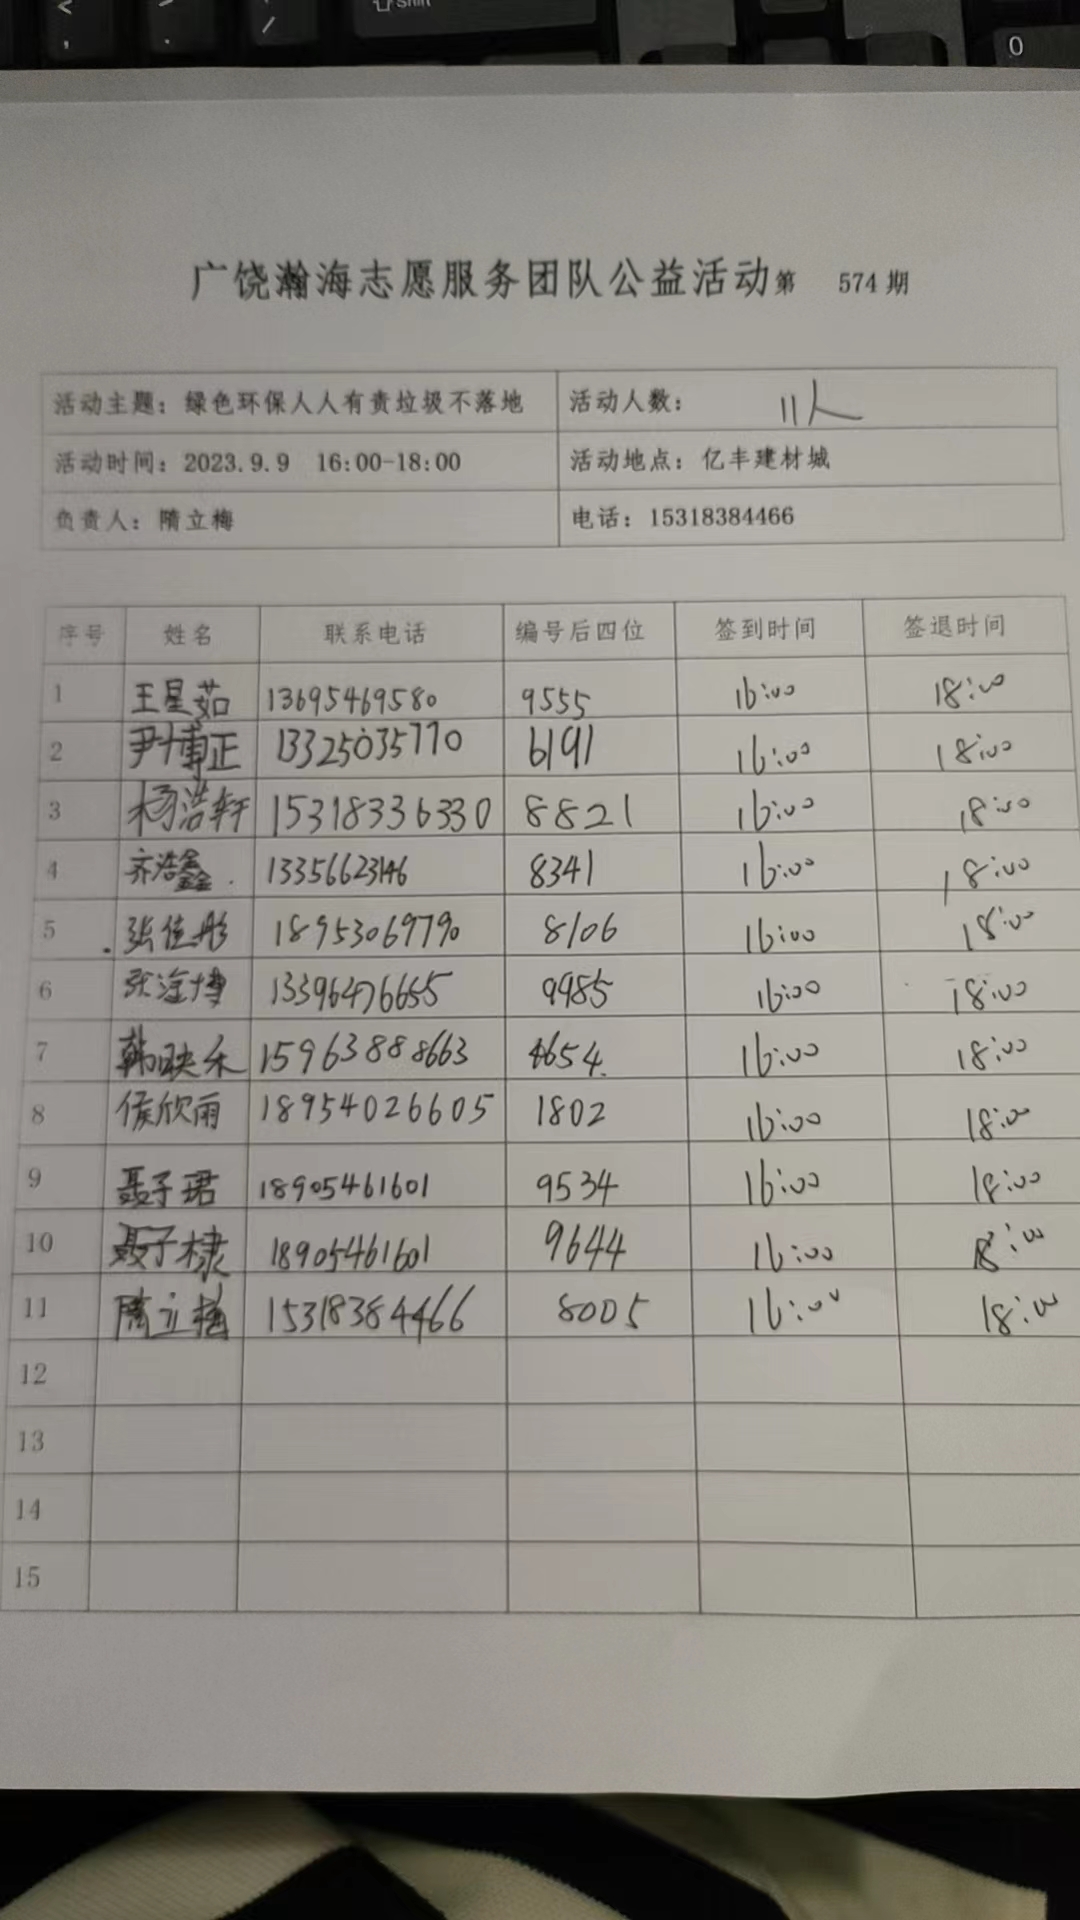 <
,
.
/
⇧Shift
0
广饶瀚海志愿服务团队公益活动第 574 期
活动主题：绿色环保人人有责垃圾不落地 活动人数： 11人
活动时间：2023.9.9 16:00-18:00 活动地点：亿丰建材城
负责人：隋立梅 电话：15318384466
序号 姓名 联系电话 编号后四位 签到时间 签退时间
1 王星茹 13695469580 9555 16:00 18:00
2 尹博正 13325035770 6191 16:00 18:00
3 杨浩轩 15318336330 8821 16:00 18:00
4 齐浩鑫. 13356623146 8341 16:00 18:00
5 张佳彤 18953069790 8106 16:00 18:00
6 张淦博 13396476655 9985 16:00 18:00
7 韩映禾 15963888663 4654. 16:00 18:00
8 侯欣雨 18954026605 1802 16:00 18:00
9 聂子珺 18905461601 9534 16:00 18:00
10 聂子棣 18905461601 9644 16:00 18:00
11 隋立梅 15318384466 8005 16:00 18:00
12
13
14
15